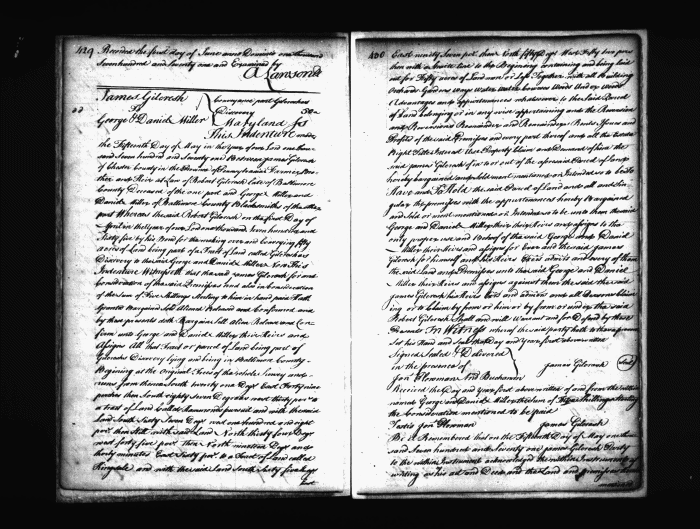 429
Recorded the first day of June anno Domini one thousand
Seven hundred and Seventy one and Examined by
A Lawson Clk
James Gilcresh
To
George & David Miller
Conveyance part Gilcrashes
Discovery 50a
Maryland for
This Indenture made
the Fifteenth Day of May in the Year of our Lord one thou-
sand Seven hundred and Seventy one Between James Gilcresh
of Chester County in the Province of Pennsylvania Farmer, Bro-
ther and Heir at Law of Robert Gilcresh Late of Baltimore
County Deceased of the one part and George Miller and
David Miller of Baltimore County Blacksmiths of the other
part Whereas the said Robert Gilcresh on the first Day of
April in the Year of our Lord one thousand Seven hundred and
Sixty five by his Bond for the making over and Conveying fifty
acres of Land being part of a Tract of Land called Gilcrashes
Discovery to the said George and David Miller Now This
Indenture Witnesseth that the said James Gilcresh for and
Consideration of the said Premises and also in Consideration
of the Sum of Five Shillings Sterling to him in hand paid Hath
Granted Bargained Sold Aliened Released and Confirmed and
by these presents doth Bargain Sell alien Release and Con-
firm unto George and David Miller their Heirs and
Assigns All that Tract or parcel of Land being part of
Gilcrashes Discovery lying and being in Baltimore County
Beginning at the Original of the whole Survey and
runing from thence South twenty one Degs East Forty nine
perches then South eighty Seven Degrees west thirty pers to
a tract of Land Called pursuit and with the said
Land South Sixty Seven Degs west one hundred and eight
pers then Still with said Land North thirty four Degs
west forty five pers then North nineteen Degs and
thirty minutes East Sixty pers to a Tract of Land called
Ringdale and with the said Land South Sixty Six Degs
East
430
East ninety Seven pers then North fifty Degs West Fifty two pers
then with a Streight Line to the Beginning Containing and being laid
out for Fifty acres of Land more or less Together with all Building
Orchards Gardens Ways Waters Water Courses Woods Under Woods
Advantages and appurtenances whatsoever to the said Parcel
of Land belonging or in any wise appertaining and the Reversion
and Reversions Remainder and Remainders Rents Issues and
Profits of the said Premises and every part thereof and all the Estate
Right Title Interest Use Property Claim and Demand of him the
said James Gilcresh of in to or out of the aforesaid Parcel of Land
hereby bargained and sold ment mentioned or Intended so to be To
Have and To Hold the said Parcel of Land and all and Sin-
gular the premises with the appurtenances hereby Bargained
and Sold or ment mentioned or Intended so to be unto them the said
George and David Miller their Heirs and assigns to the
only proper use and behoof of the said George and David
Miller their Heirs and assigns for Ever and the said James
Gilcresh for himself and his Heirs Exors admrs and every of them
the said Land and Premises unto the said George and David
Miller their Heirs and assigns against them the said
James Gilcresh his Heirs Exrs and admrs and all Persons Claim-
ing or to claim by from or him or by from or under the said
Robert Gilcresh Shall and will Warrant and for Ever Defend by these
Presents In Witness whereof the said party hath hereunto
Set his Hand and Seal the Day and Year first above written
Signed Sealed & Delivered
in the presence of
Jon Plowman Jno Buchanan
James Gilcresh
Seal
Received the Day and Year first above written of and from the within
named George and David Miller the Sum of Five Shillings Sterling
the Consideration mentioned to be paid
Testis Jon Plowman
James Gilcresh
Be it Remembered that on the Fifteenth Day of May one thou-
sand Seven hundred and Seventy one James Gilcresh Party
to the within Instrument acknowledged the within Instrument of
writing as his act and Deed and the Land and premises therein
mentioned